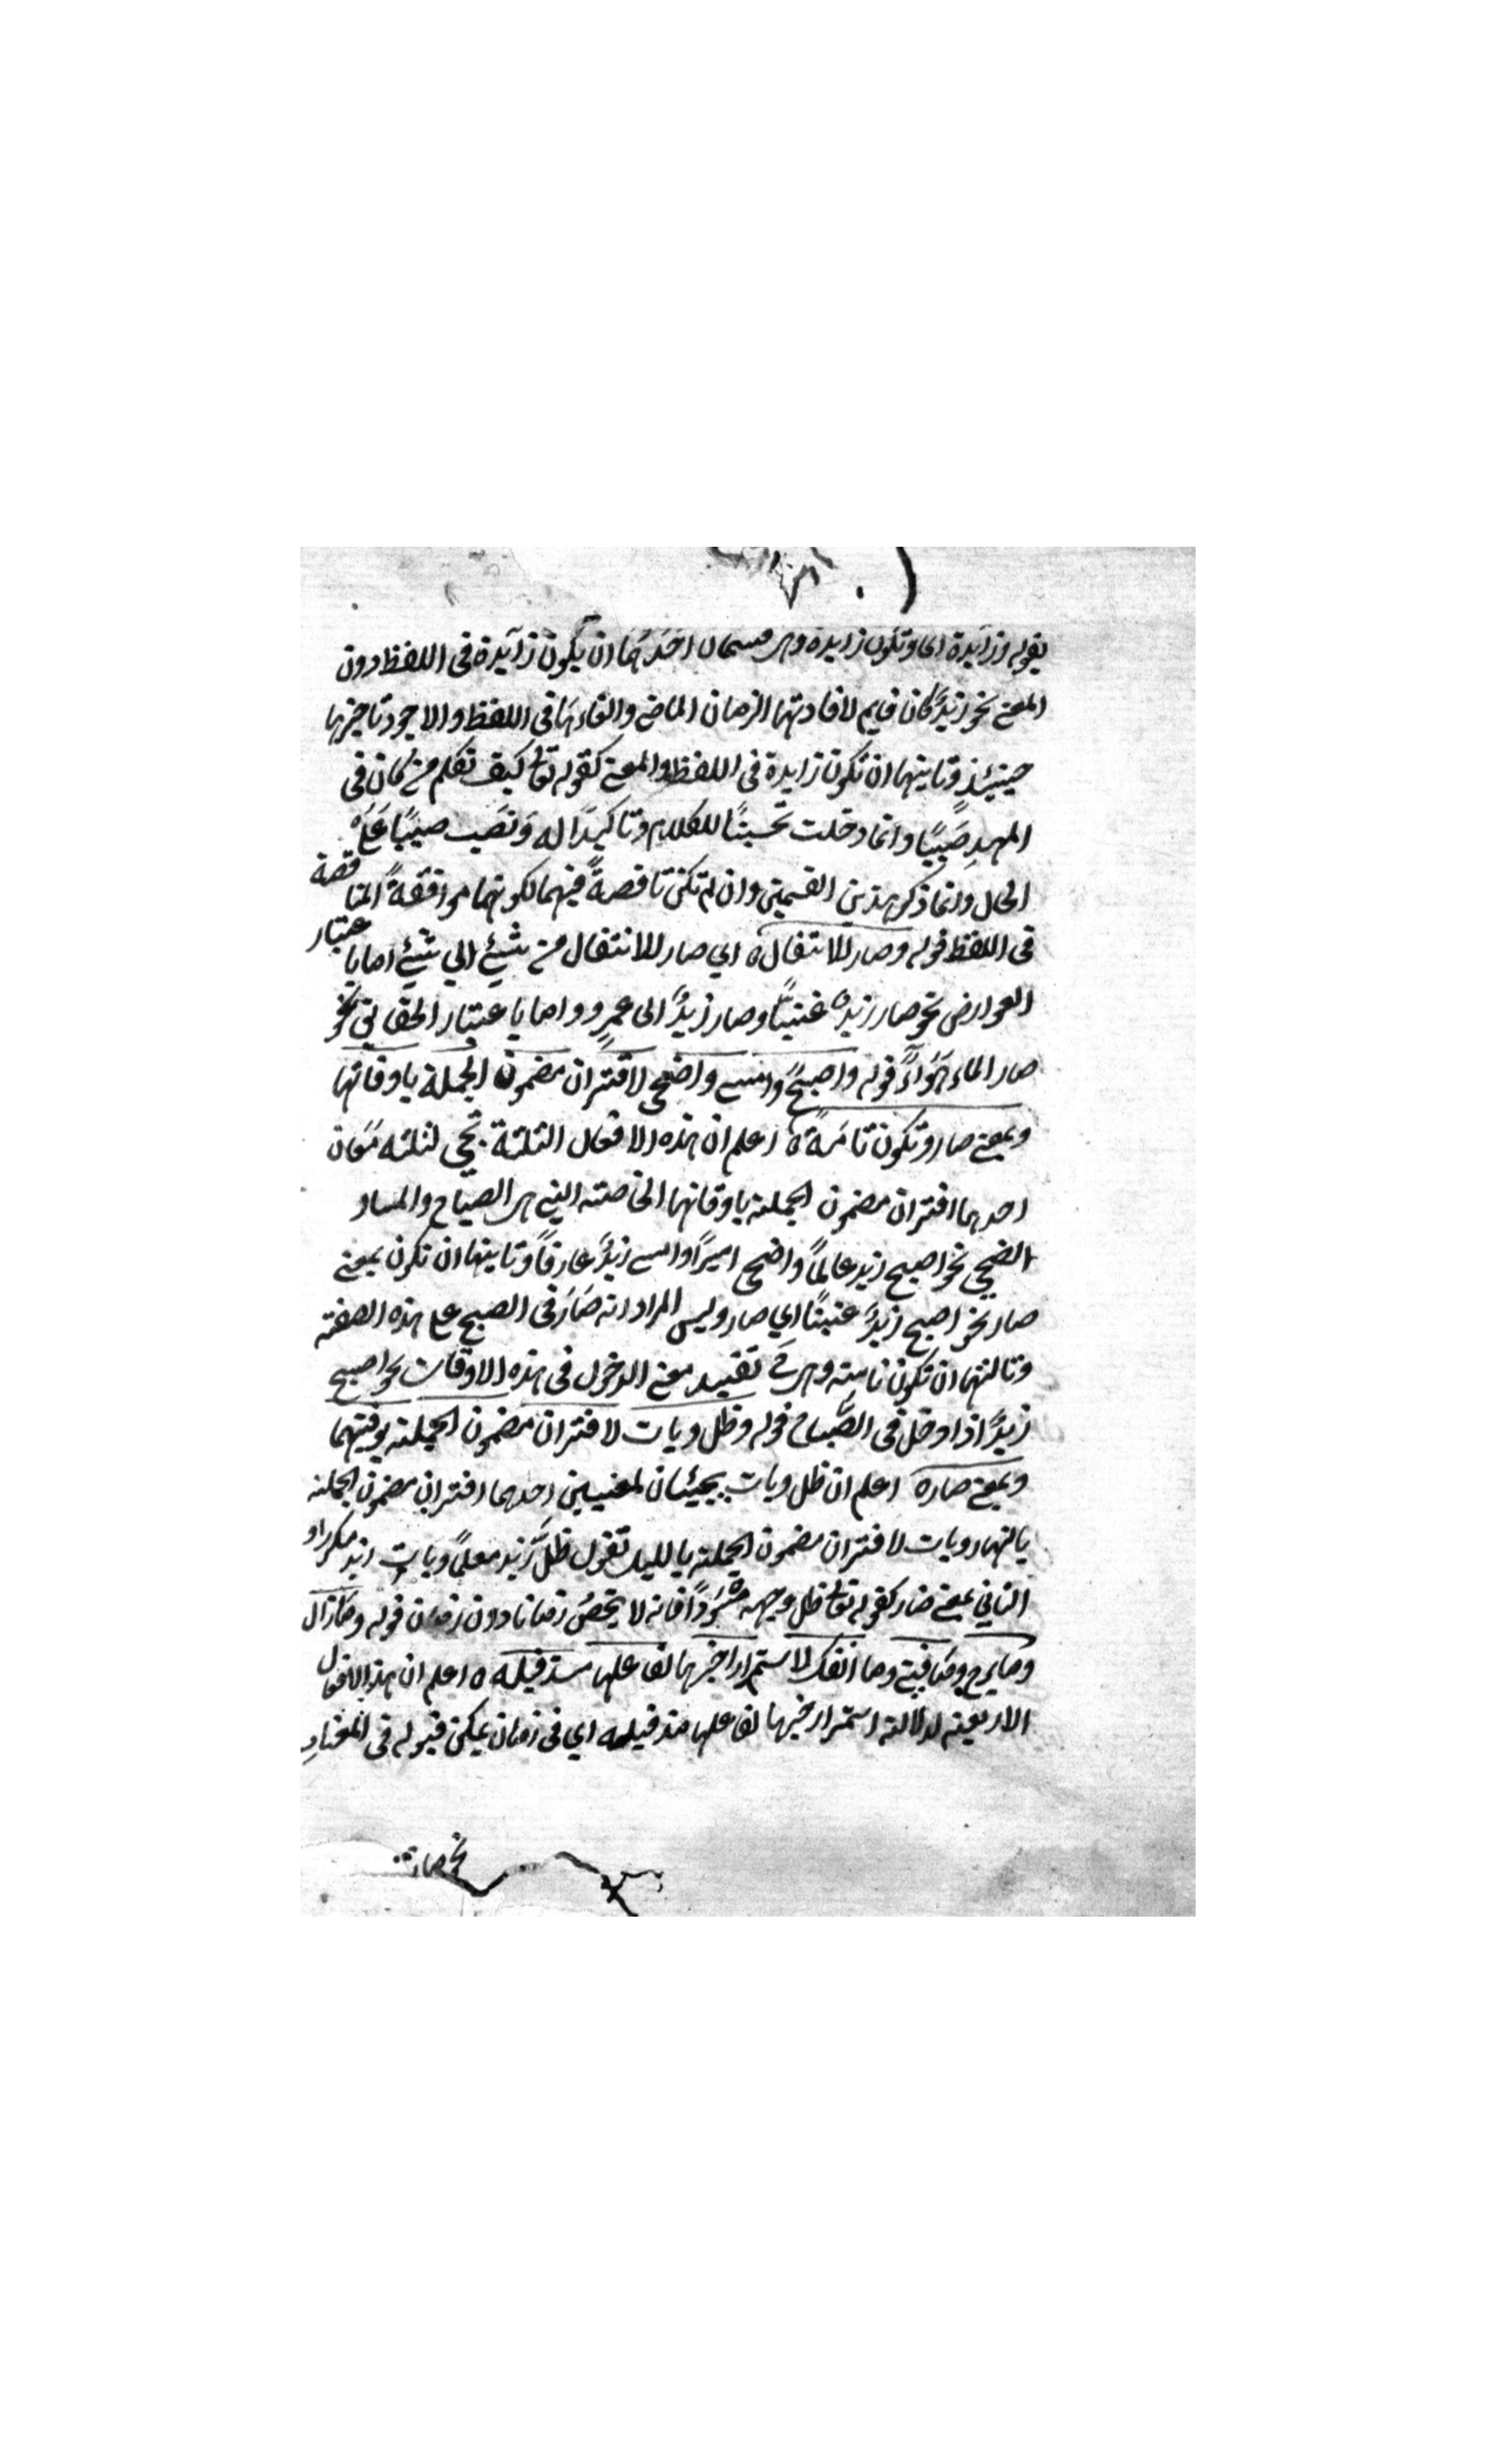 بقوله وزائدة اى وتكون زايدة وهى قسمان احَدُهُمَا ان يكون زآيدة فى اللفظ دون
المعنى نحو زيدٌ كان قايم لافادتها الزمان الماضى والغاءهَا فى اللفظ والا جوز تاخيرها
حينيئذٍ وثانيتها ان تكون زايدة فى اللفظ والمعنى كقوله تعالى كيف نكلم من كان فى
المهدِ صَبِيًّا وانما دخلت تحسينًا للكلام وتاكيدًا له وَنصَب صبيًا عَلَى
الحال وانما ذكر هذين القسمين وان لم تكن ناقصةً فيهما لكونهما موافقةً لناقصة
فى اللفظ قوله وصار للانتقال ه اي صار للانتقال من شيئ الي شيئ اما باعتبار
العوارض نحو صار زيد غنيًّا وصار زيدٌ الى عمرٍو واما باعتبار الحقايق نحو
صار الماء هَوَاءً قوله واصبح وامسى واضحى لاقتران مضمون الجملة باوقاتها
وبمعنى صار وتكون تامّةً ه اعلم ان هذه الافعال الثلثة تجى لثلثه مَعان
احدهما اقتران مضمون الجملة باوقاتها الخاصته التى هى الصباح والمساو
الضحى نحو اصبح زيد عالمًا واضحى اميرًا وامسى زيدٌ عارفًا وثانيتها ان تكون بمعنى
صار نحو اصبح زيدٌ غنيًا اي صار وليس المراد انه صَارَ فى الصبح على هذه الصفته
وثالثتها ان تكون تامته وهى تفيد معنى الدخول فى هذه الاوقات نحو اصبح
زيدٌ اذا دخل فى الصَّباح قوله وظل وبات لاقتران مضمون الجملته بوقتيهما
وبمعنى صار ه اعلم ان ظل وبات يجيئان لمعنيين احدهما اقتران مضمون الجملته
بالنهار وبات لاقتران مضمون الجملته بالليل تقول ظلَّ زيد معلمًا وبات زيد مكررا و
الثاني بمعنى صار كقوله تعالى ظل وجهه مُسْوَدًا فانه لا يخصُ زمانا دون زمان قوله ومَا زال
وما برح ومَا فتىء وما انفك لاستمرار خبرها لفاعلها مذ قبله ه اعلم ان هذه الافعال
الاربعته لدلالته استمرار خبرها لفاعلها مذ قبله اي فى زمان يمكن قبوله فى المعتادِ
نحو صار